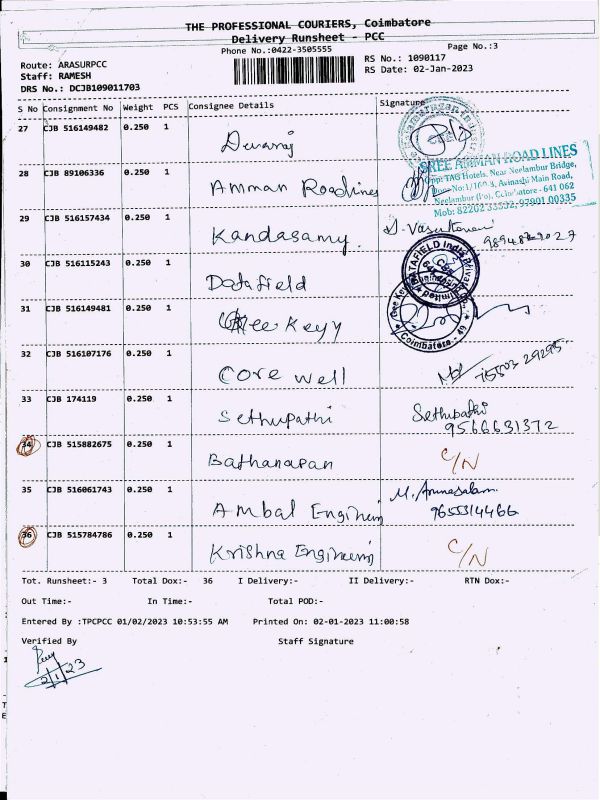 THE PROFESSIONAL COURIERS, Coimbatore
Delivery Runsheet - PCC
Phone No.:0422-3505555
Page No.:3
Route: ARASURPCC
RS No.: 1090117
Staff: RAMESH
RS Date: 02-Jan-2023
DRS No.: DCJB109011703
S No Consignment No Weight PCS Consignee Details Signature
27 CJB 516149482 0.250 1 Devaraj
28 CJB 89106336 0.250 1 Amman Roadlines
SREE AMMAN ROAD LINES
Opp: TAG Hotels, Near Neelambur Bridge,
Avinashi Main Road,
Neelambur (Po), Coimbatore - 641 062
Mob: 97901 00335
29 CJB 516157434 0.250 1 Kandasamy.
30 CJB 516115243 0.250 1 Datafield
DATAFIELD India Private Limited
31 CJB 516149481 0.250 1 Gee Keyy
Gee Keyy
Coimbatore - 49
32 CJB 516107176 0.250 1 Core well 75503 29295
33 CJB 174119 0.250 1 Sethupathi Sethupathi
9566631372
34 CJB 515882675 0.250 1 Bathanapan C/N
35 CJB 516061743 0.250 1 Ambal Engineering M. Arunasalam
9655314466
36 CJB 515784786 0.250 1 Krishna Engineering C/N
Tot. Runsheet:- 3 Total Dox:- 36 I Delivery:- II Delivery:- RTN Dox:-
Out Time:- In Time:- Total POD:-
Entered By :TPCPCC 01/02/2023 10:53:55 AM Printed On: 02-01-2023 11:00:58
Verified By Staff Signature
2/1/23